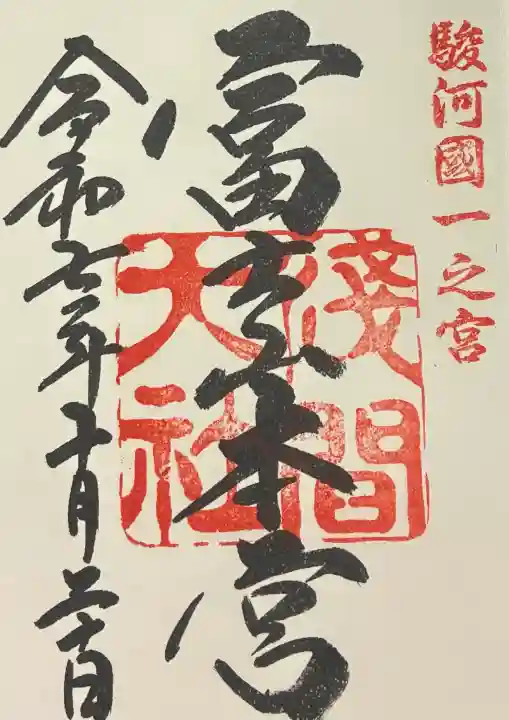 駿河國一之宮
富士山本宮
淺間
大社
令和七年十月二十日